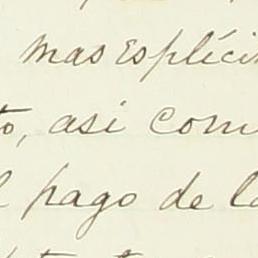 mas esplíci
to, así com
l pago de la